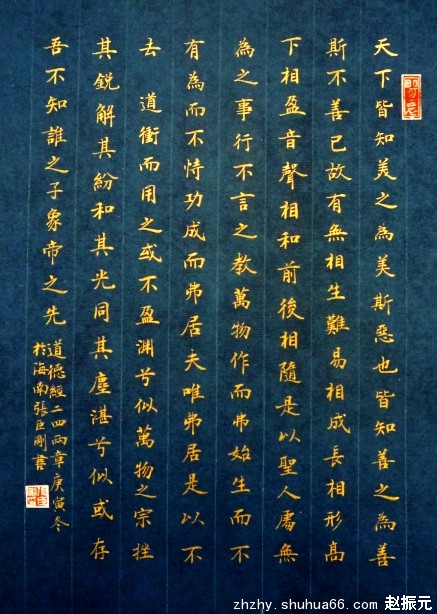 天下皆知美之為美斯惡也皆知善之為善
斯不善已故有無相生難易相成長相形高
下相盈音聲相和前後相隨是以聖人處無
為之事行不言之教萬物作而弗始生而不
有為而不恃功成而弗居夫唯弗居是以不
去 道衝而用之或不盈渊兮似萬物之宗挫
其銳解其紛和其光同其塵湛兮似或存
吾不知誰之子象帝之先
道德經二四兩章庚寅冬
扵海南張巨剛書
zhzhy.shuhua66.com 赵振元